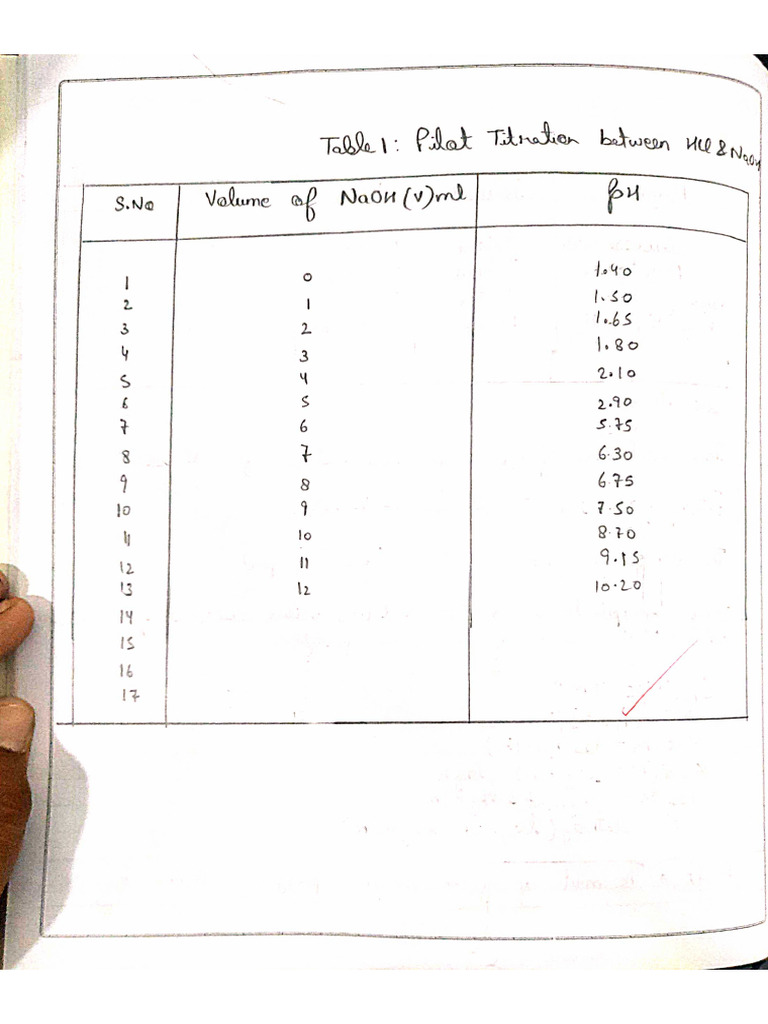 Table 1: Pilot Titration between HCl & NaOH
S.No Volume of NaOH (V) ml pH
1 0 1.40
2 1 1.50
3 2 1.65
4 3 1.80
5 4 2.10
6 5 2.90
7 6 5.75
8 7 6.30
9 8 6.75
10 9 7.50
11 10 8.70
12 11 9.15
13 12 10.20
14
15
16
17